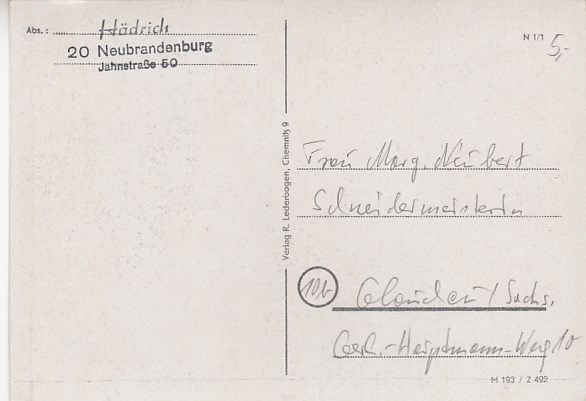 Abs.: Hädrich
20 Neubrandenburg
Jahnstraße 50
N 1/1
5,-
Verlag R. Lederbogen, Chemnitz 9
Frau Marg. Neubert
Schneidermeisterin
10b Glauchau / Sachs.
Gerh.-Hauptmann-Weg 10
M 193 / Z 492